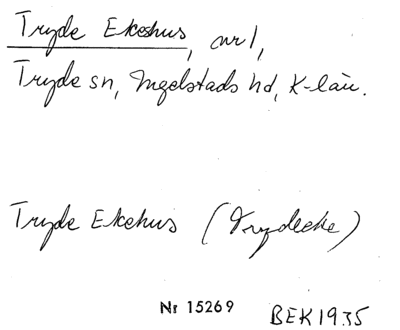 Tryde Ekeshus, nr 1,
Tryde sn, Ingelstads hd, K-län.
Tryde Ekehus (Trydeeke)
Nr 15269 BEK 1935